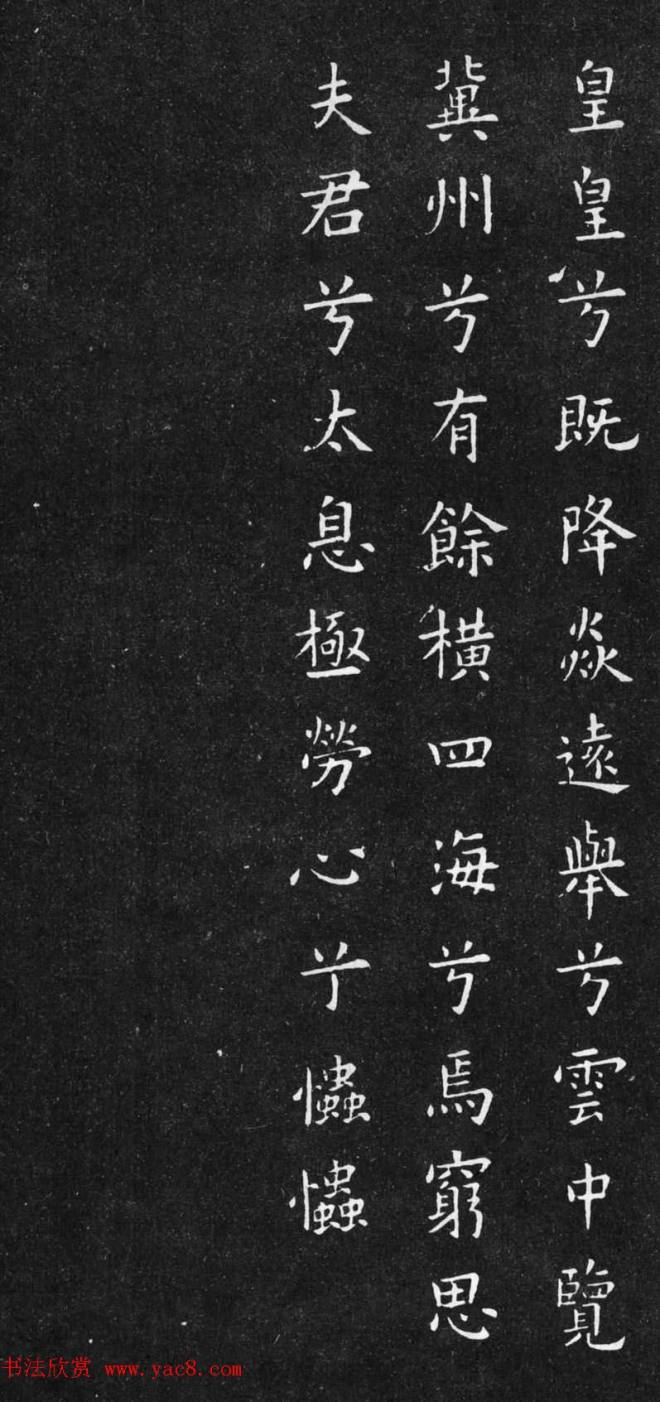 皇皇兮既降焱遠舉兮雲中覽
冀州兮有餘横四海兮焉窮思
夫君兮太息極勞心兮爞爞
书法欣赏 www.yac8.com